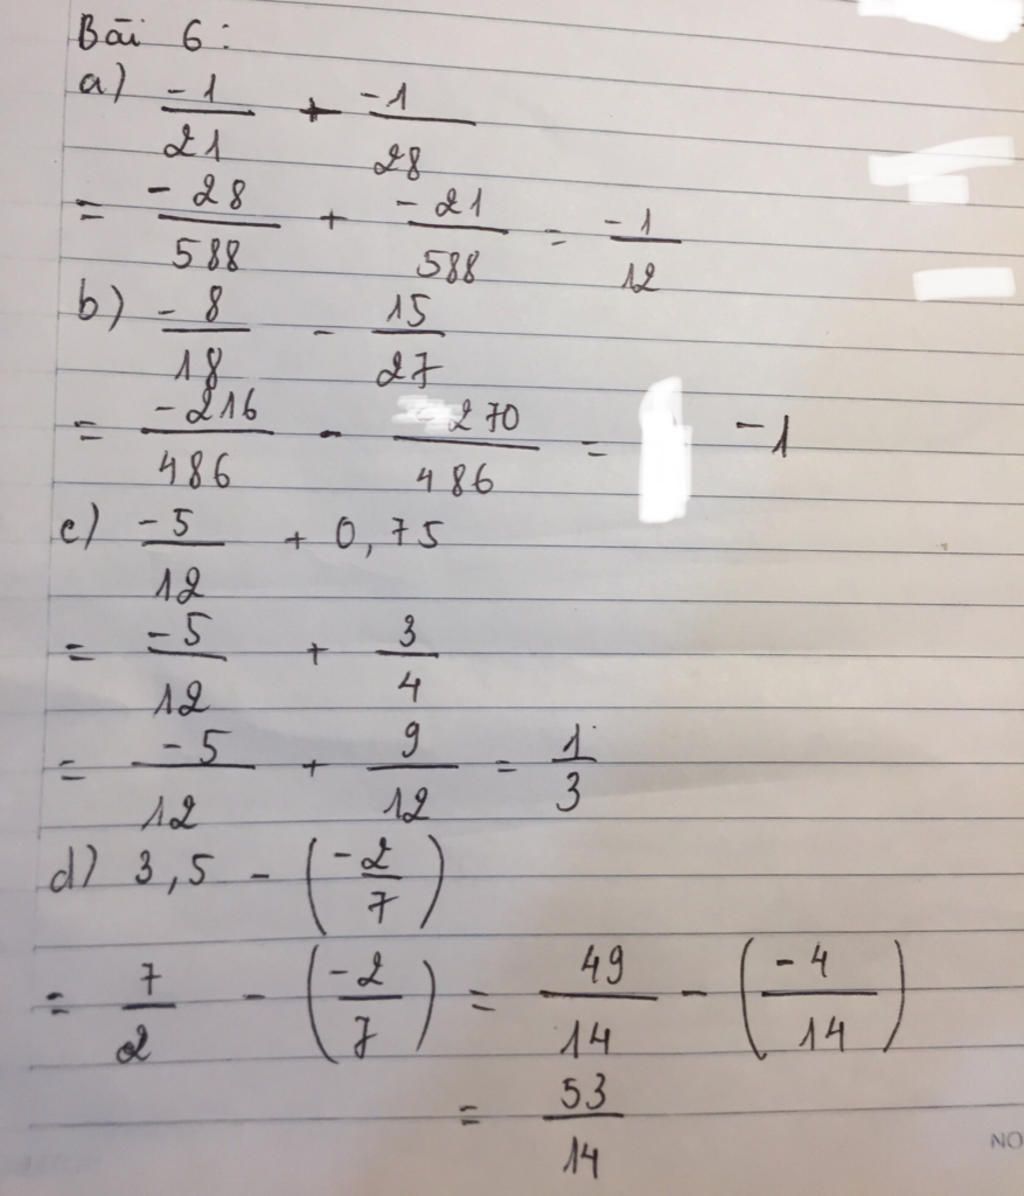 Bài 6:
a) -1/21 + -1/28
= -28/588 + -21/588 = -1/12
b) -8/18 - 15/27
= -216/486 - 270/486 = -1
c) -5/12 + 0,75
= -5/12 + 3/4
= -5/12 + 9/12 = 1/3
d) 3,5 - (-2/7)
= 7/2 - (-2/7) = 49/14 - (-4/14)
= 53/14
NO